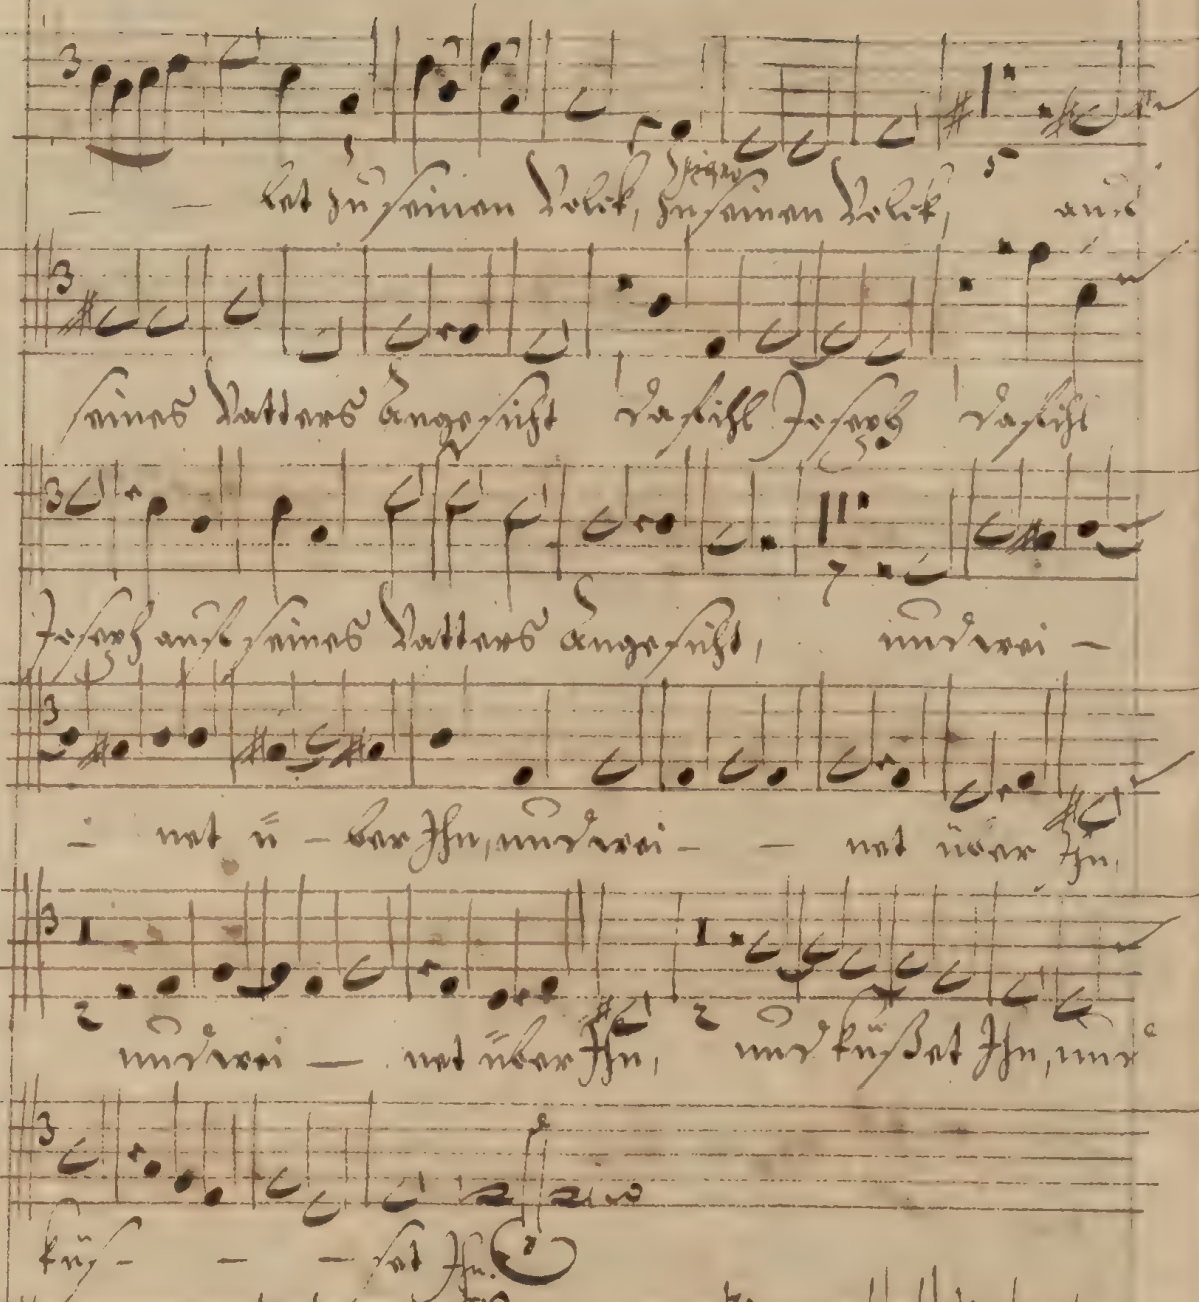 – – let zu seinen Volck, zu seinen Volck, auf
seines Vatters Angesicht da fihl Joseph da fihl
Joseph auf seines Vatters Angesicht, und wei –
– net ü – ber Ihn, und wei – – net über Ihn,
und wei – net über Ihn, und küßet Ihn, und
küs – – – set Ihn.